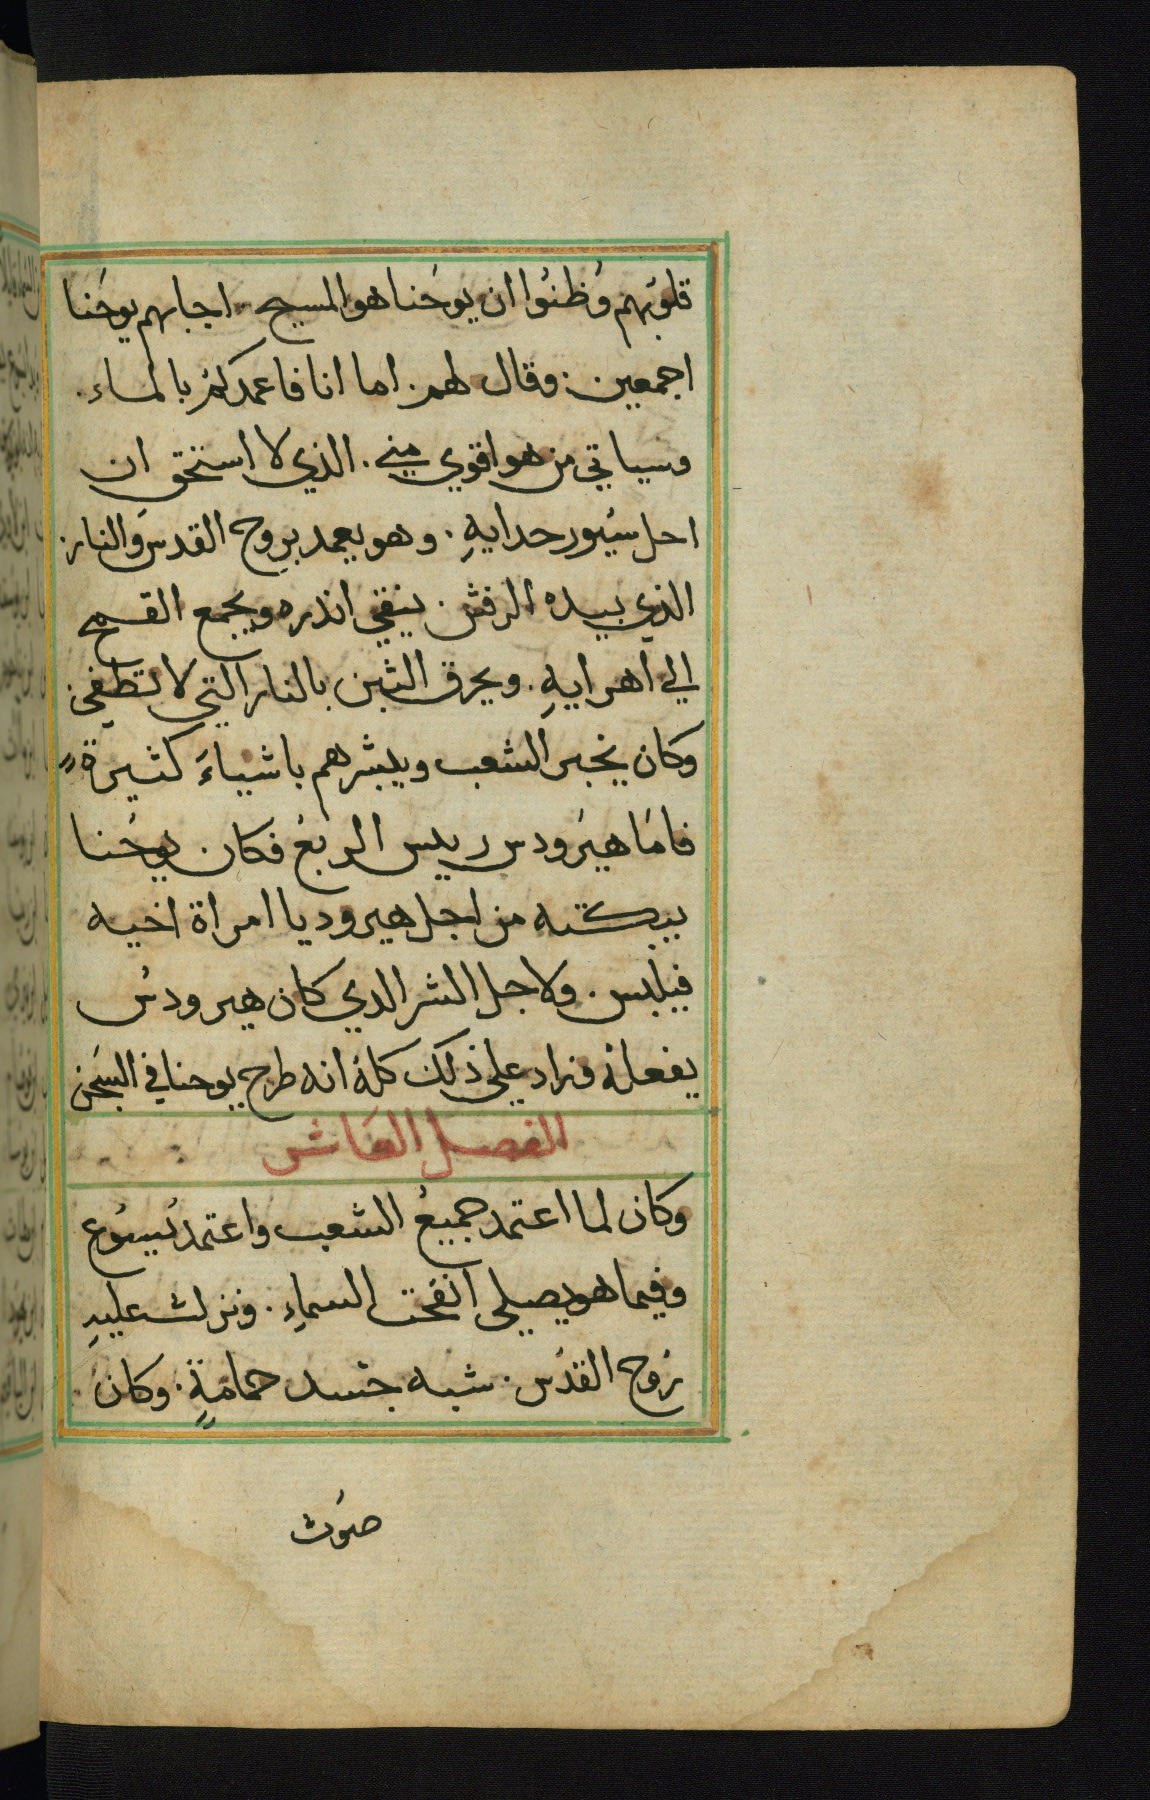 قلوبهم وظنوا ان يوحنا هو المسيح ٠ اجابهم يوحنا
اجمعين ٠ وقال لهم ٠ اما انا فاعمدكم بالماء ٠
وسياتي من هو اقوي مني ٠ الذي لا استحق ان
احل سيور حدايهِ ٠ وهو يعمد بروح القدس والنار ٠
الذي بيده الرفش ٠ ينقي اندره ويجمع القمح
الي اهرايهِ ٠ ويحرق التبن بالنار التي لا تطفي ٠
وكان يخبر الشعب ويبشرهم باشياءَ كثيرة
فامَا هيرودس رييس الربع فكان يوحنا
يبكته من اجل هيروديا امراة اخيه
فيلبس ٠ ولاجل الشر الدي كان هيرودس
يفعلهُ فزاد علي ذلك كلهُ انه طرح يوحنا في السجن
الفصل العاشر
وكان لما اعتمد جميعُ الشعب واعتمد يسوع
وفيما هو يصلي انفتحت السماءِ ٠ ونزلت عليهِ
روح القدس ٠ شبه جسد حمامةٍ ٠ وكان
صوت